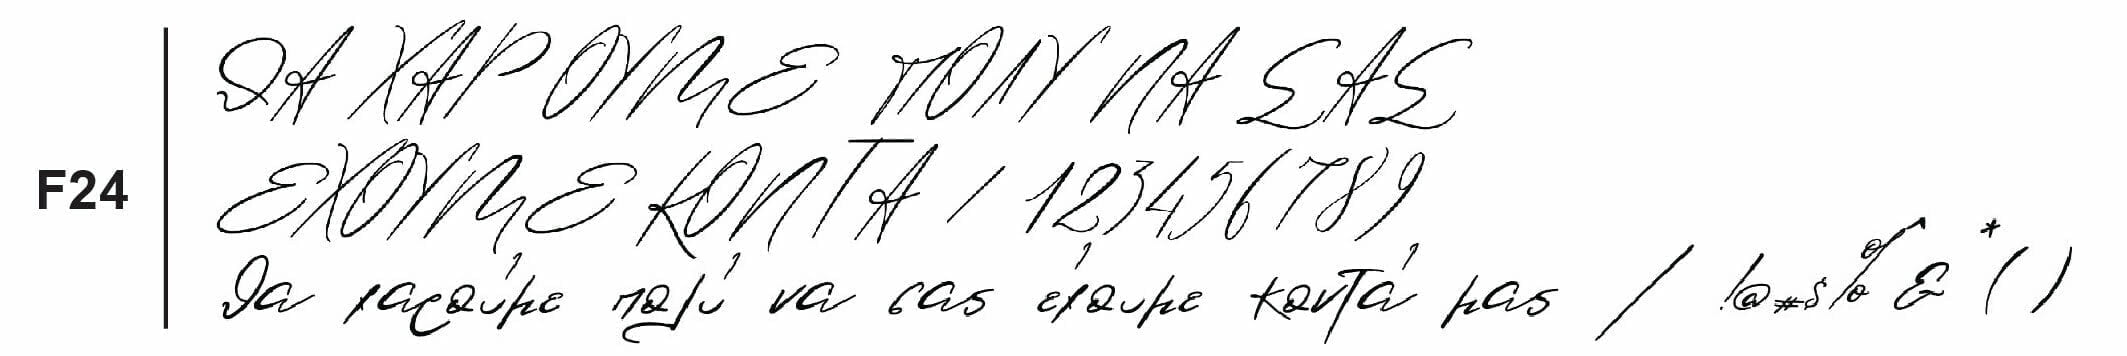 F24
ΘΑ ΧΑΡΟΥΜΕ ΠΟΛΥ ΝΑ ΣΑΣ
ΕΧΟΥΜΕ ΚΟΝΤΑ / 123456789
θα χαρούμε πολύ να σας έχουμε κοντά μας / !@#$%^&*()